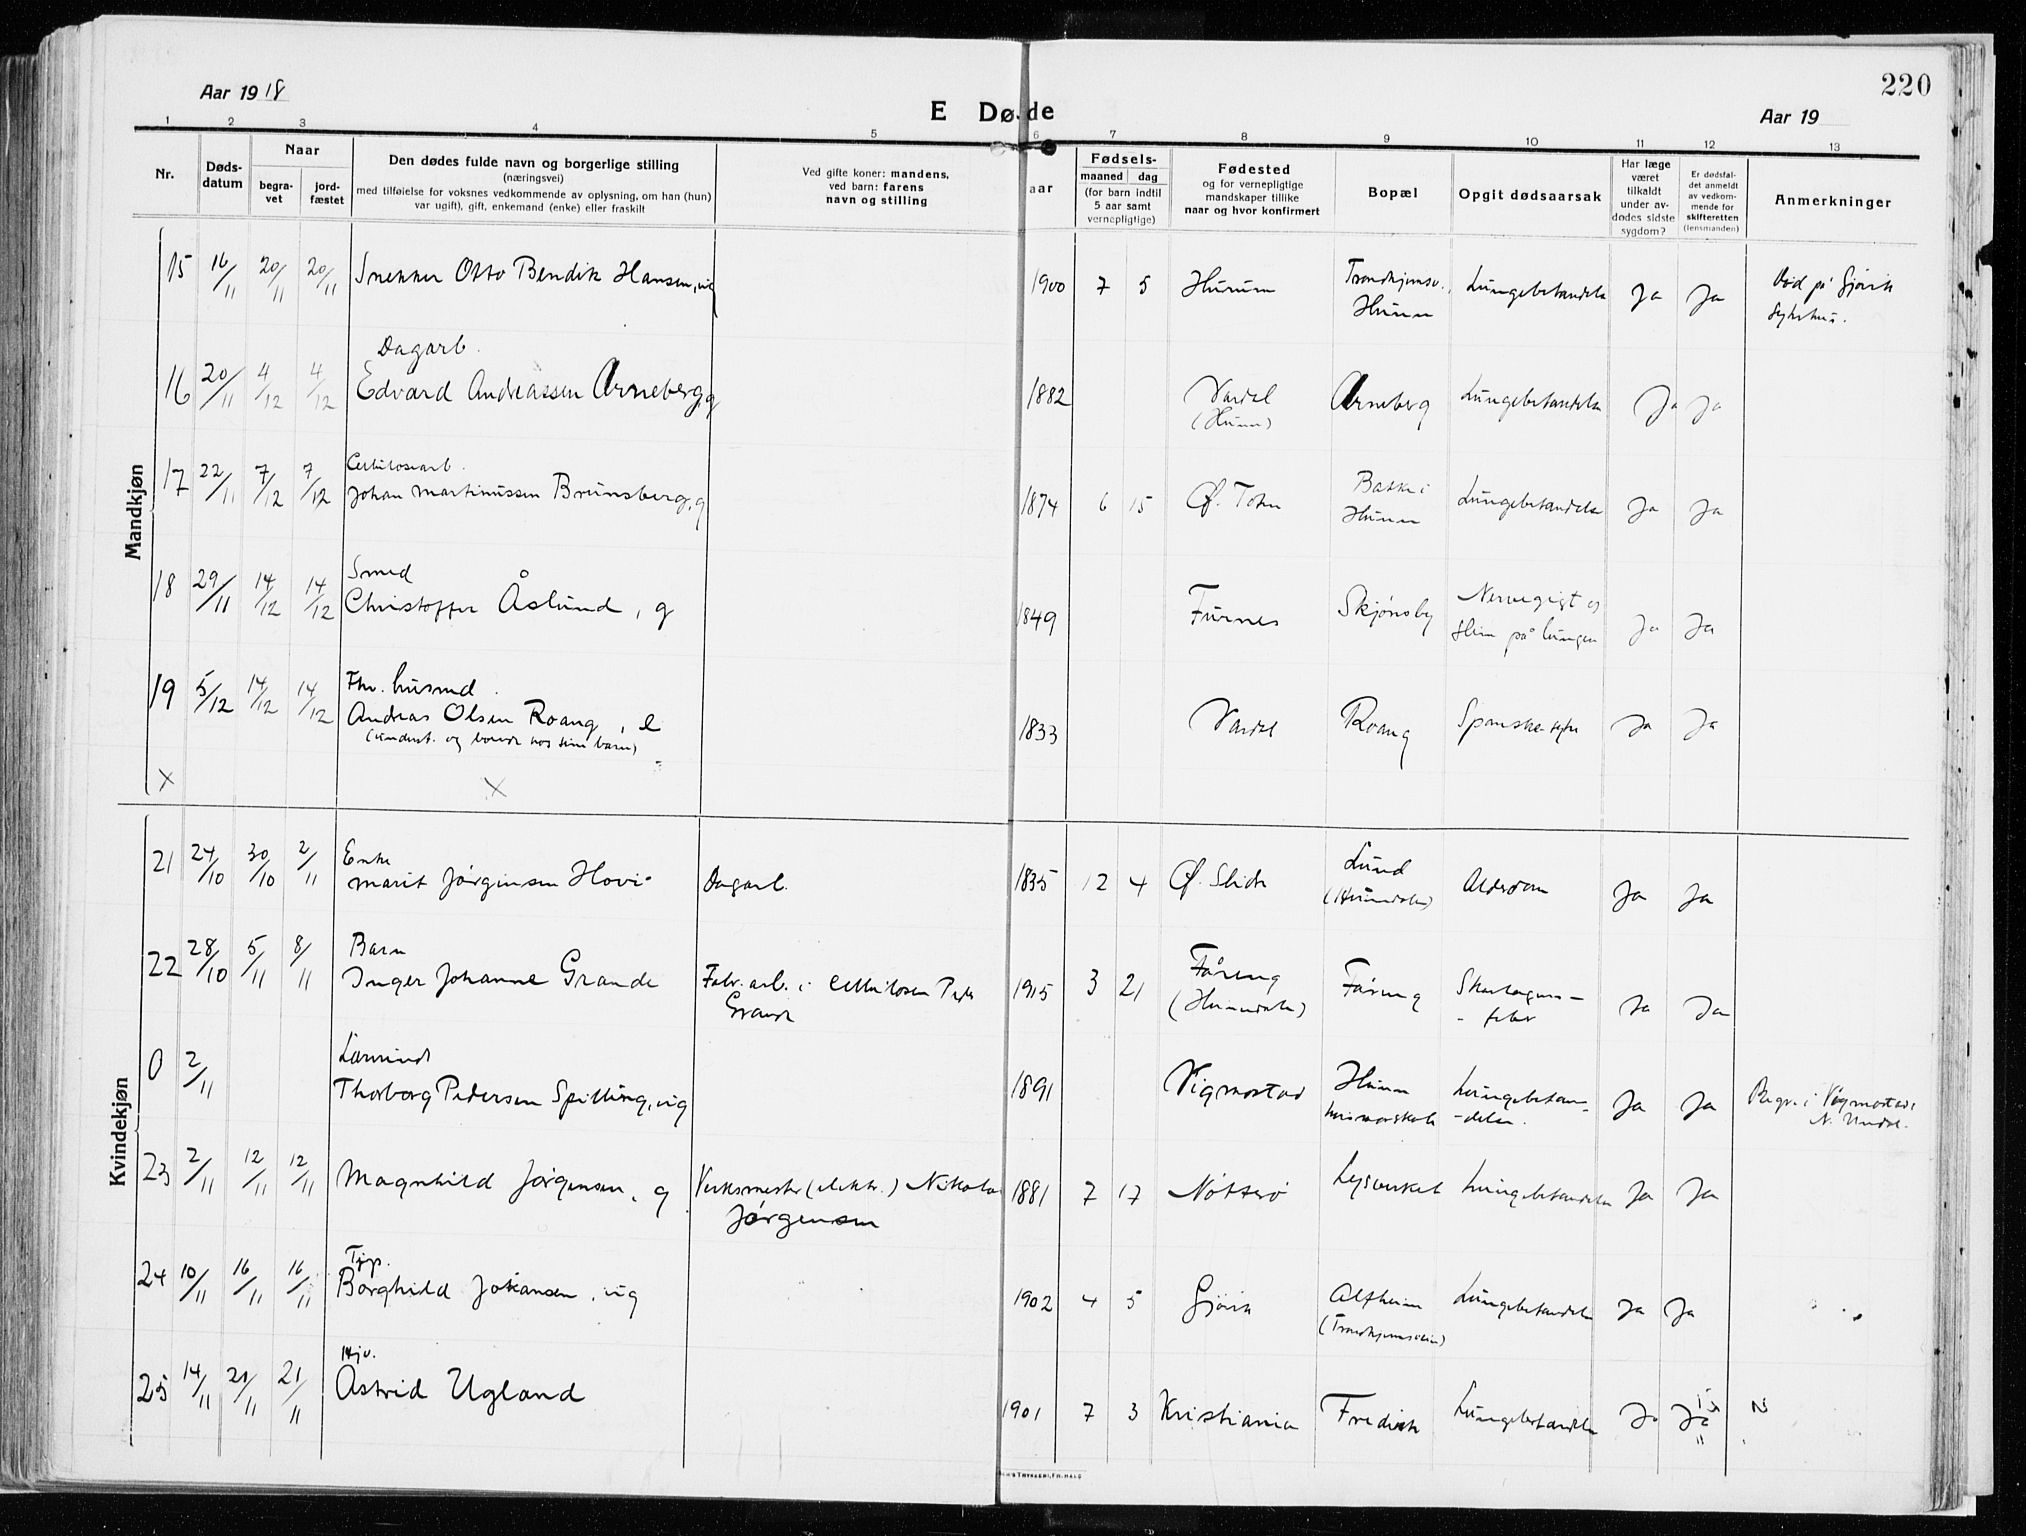 220
Aar 1918
E Døde
Aar 19
1 2 3 4 5 6 7 8 9 10 11 12 13
Nr.
Døds-
datum
Naar
begra-
vet
jord-
fæstet
Den dødes fulde navn og borgerlige stilling
(næringsvei)
med tilføielse for voksnes vedkommende av oplysning, om han (hun)
var ugift), gift, enkemand (enke) eller fraskilt
Ved gifte koner: mandens,
ved barn: farens
navn og stilling
aar
Fødsels-
maaned dag
(for barn indtil
5 aar samt
vernepligtige)
Fødested
og for vernepligtige
mandskaper tillike
naar og hvor konfirmert
Bopæl
Opgit dødsaarsak
Har læge
været
tilkaldt
under av-
dødes sidste
sygdom?
Er dødsfal-
det anmeldt
av vedkom-
mende for
skifteretten
(lensmanden)
Anmerkninger
Mandkjøn
15 16/11 20/11 20/11 Snekker Otto Bendik Hansen, ug 1900 7 5 Hurum Trondhjemsv. Hunn Lungebetændelse Ja Ja Død på Gjøvik
Sykehus.
Dagarb.
16 20/11 4/12 4/12 Edvard Andreassen Arneberg, g 1882 Vardal
(Hunn) Arneberg Lungebetændelse Ja Ja
Cellulosearb.
17 22/11 7/12 7/12 Johan Martinussen Brunsberg, g 1874 6 15 Ø. Toten Bakke i
Hunn Lungebetændelse Ja Ja
Smed
18 29/11 14/12 14/12 Christoffer Åslund, g 1849 Furnes Skjønsby Nervegigt og
slim på lungen Ja Ja
Fhv. husmd.
19 5/12 14/12 14/12 Andreas Olsen Roang, e 1833 Vardal Roang Spanske-syke Ja Ja
(underst. og boende hos sine barn)
x x
Kvindekjøn
Enke
21 24/10 30/10 2/11 Marit Jørgensen Hovi Dagarb. 1835 12 4 Ø. Slidre Lund
(Hunndalen) Alderdom Ja Ja
Barn
22 28/10 5/11 8/11 Inger Johanne Grande Fabr. arb. i Cellulosen Peder
Grande 1915 3 21 Fåreng
(Hunndalen) Fåreng Skarlagens-
- feber Ja Ja
Lærerinde
0 2/11 Thorborg Pedersen Spilling, ug 1891 Vigmostad Hunn
husmorskole Lungebetæn-
-delse. Ja Ja Begr. i Vigmostad i
N. Undal.
23 2/11 12/11 12/11 Magnhild Jørgensen, g Verksmester (elektr.) Nikolai
Jørgensen 1881 7 17 Nøtterø Lysverket Lungebetændelse Ja Ja
Tjp.
24 10/11 16/11 16/11 Borghild Johansen, ug 1902 4 5 Gjøvik Alfheim
(Trondhjemsveien) Lungebetændelse Ja Ja
Hjv.
25 14/11 21/11 21/11 Astrid Ugland 1901 7 3 Kristiania Fredvik Lungebetændelse Ja Ja